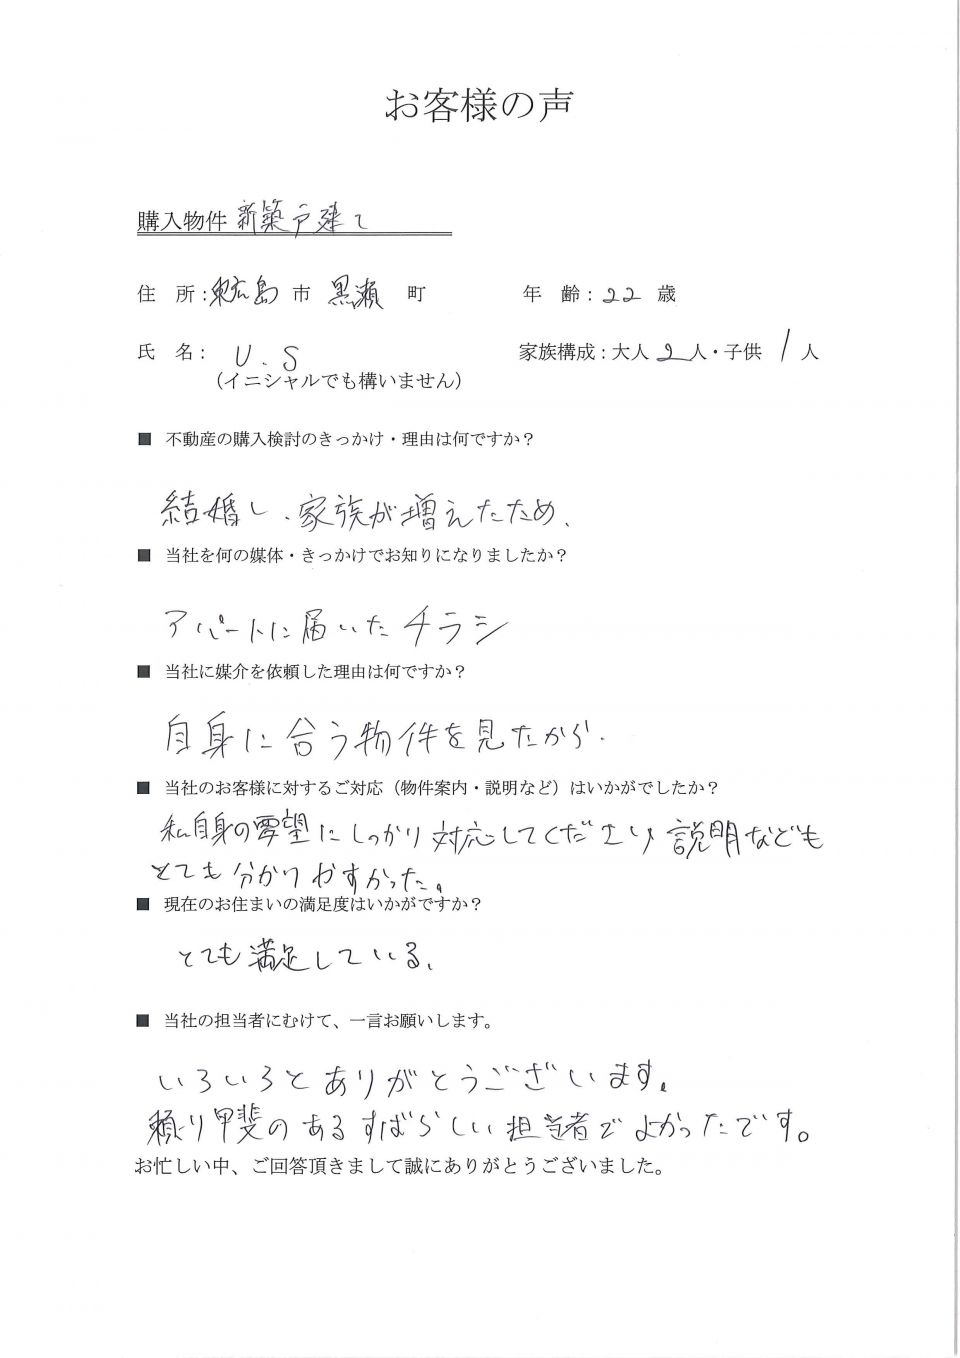 お客様の声
購入物件 新築戸建て
住 所：東広島 市 黒瀬 町 年 齢：22 歳
氏 名： U.S 家族構成：大人 2 人・子供 1 人
（イニシャルでも構いません）
■ 不動産の購入検討のきっかけ・理由は何ですか？
結婚し、家族が増えたため、
■ 当社を何の媒体・きっかけでお知りになりましたか？
アパートに届いたチラシ
■ 当社に媒介を依頼した理由は何ですか？
自身に合う物件を見たから.
■ 当社のお客様に対するご対応（物件案内・説明など）はいかがでしたか？
私自身の要望にしっかり対応してくださり説明なども
とても分かりやすかった。
■ 現在のお住まいの満足度はいかがですか？
とても満足している、
■ 当社の担当者にむけて、一言お願いします。
いろいろとありがとうございます。
頼り甲斐のあるすばらしい担当者でよかったです。
お忙しい中、ご回答頂きまして誠にありがとうございました。